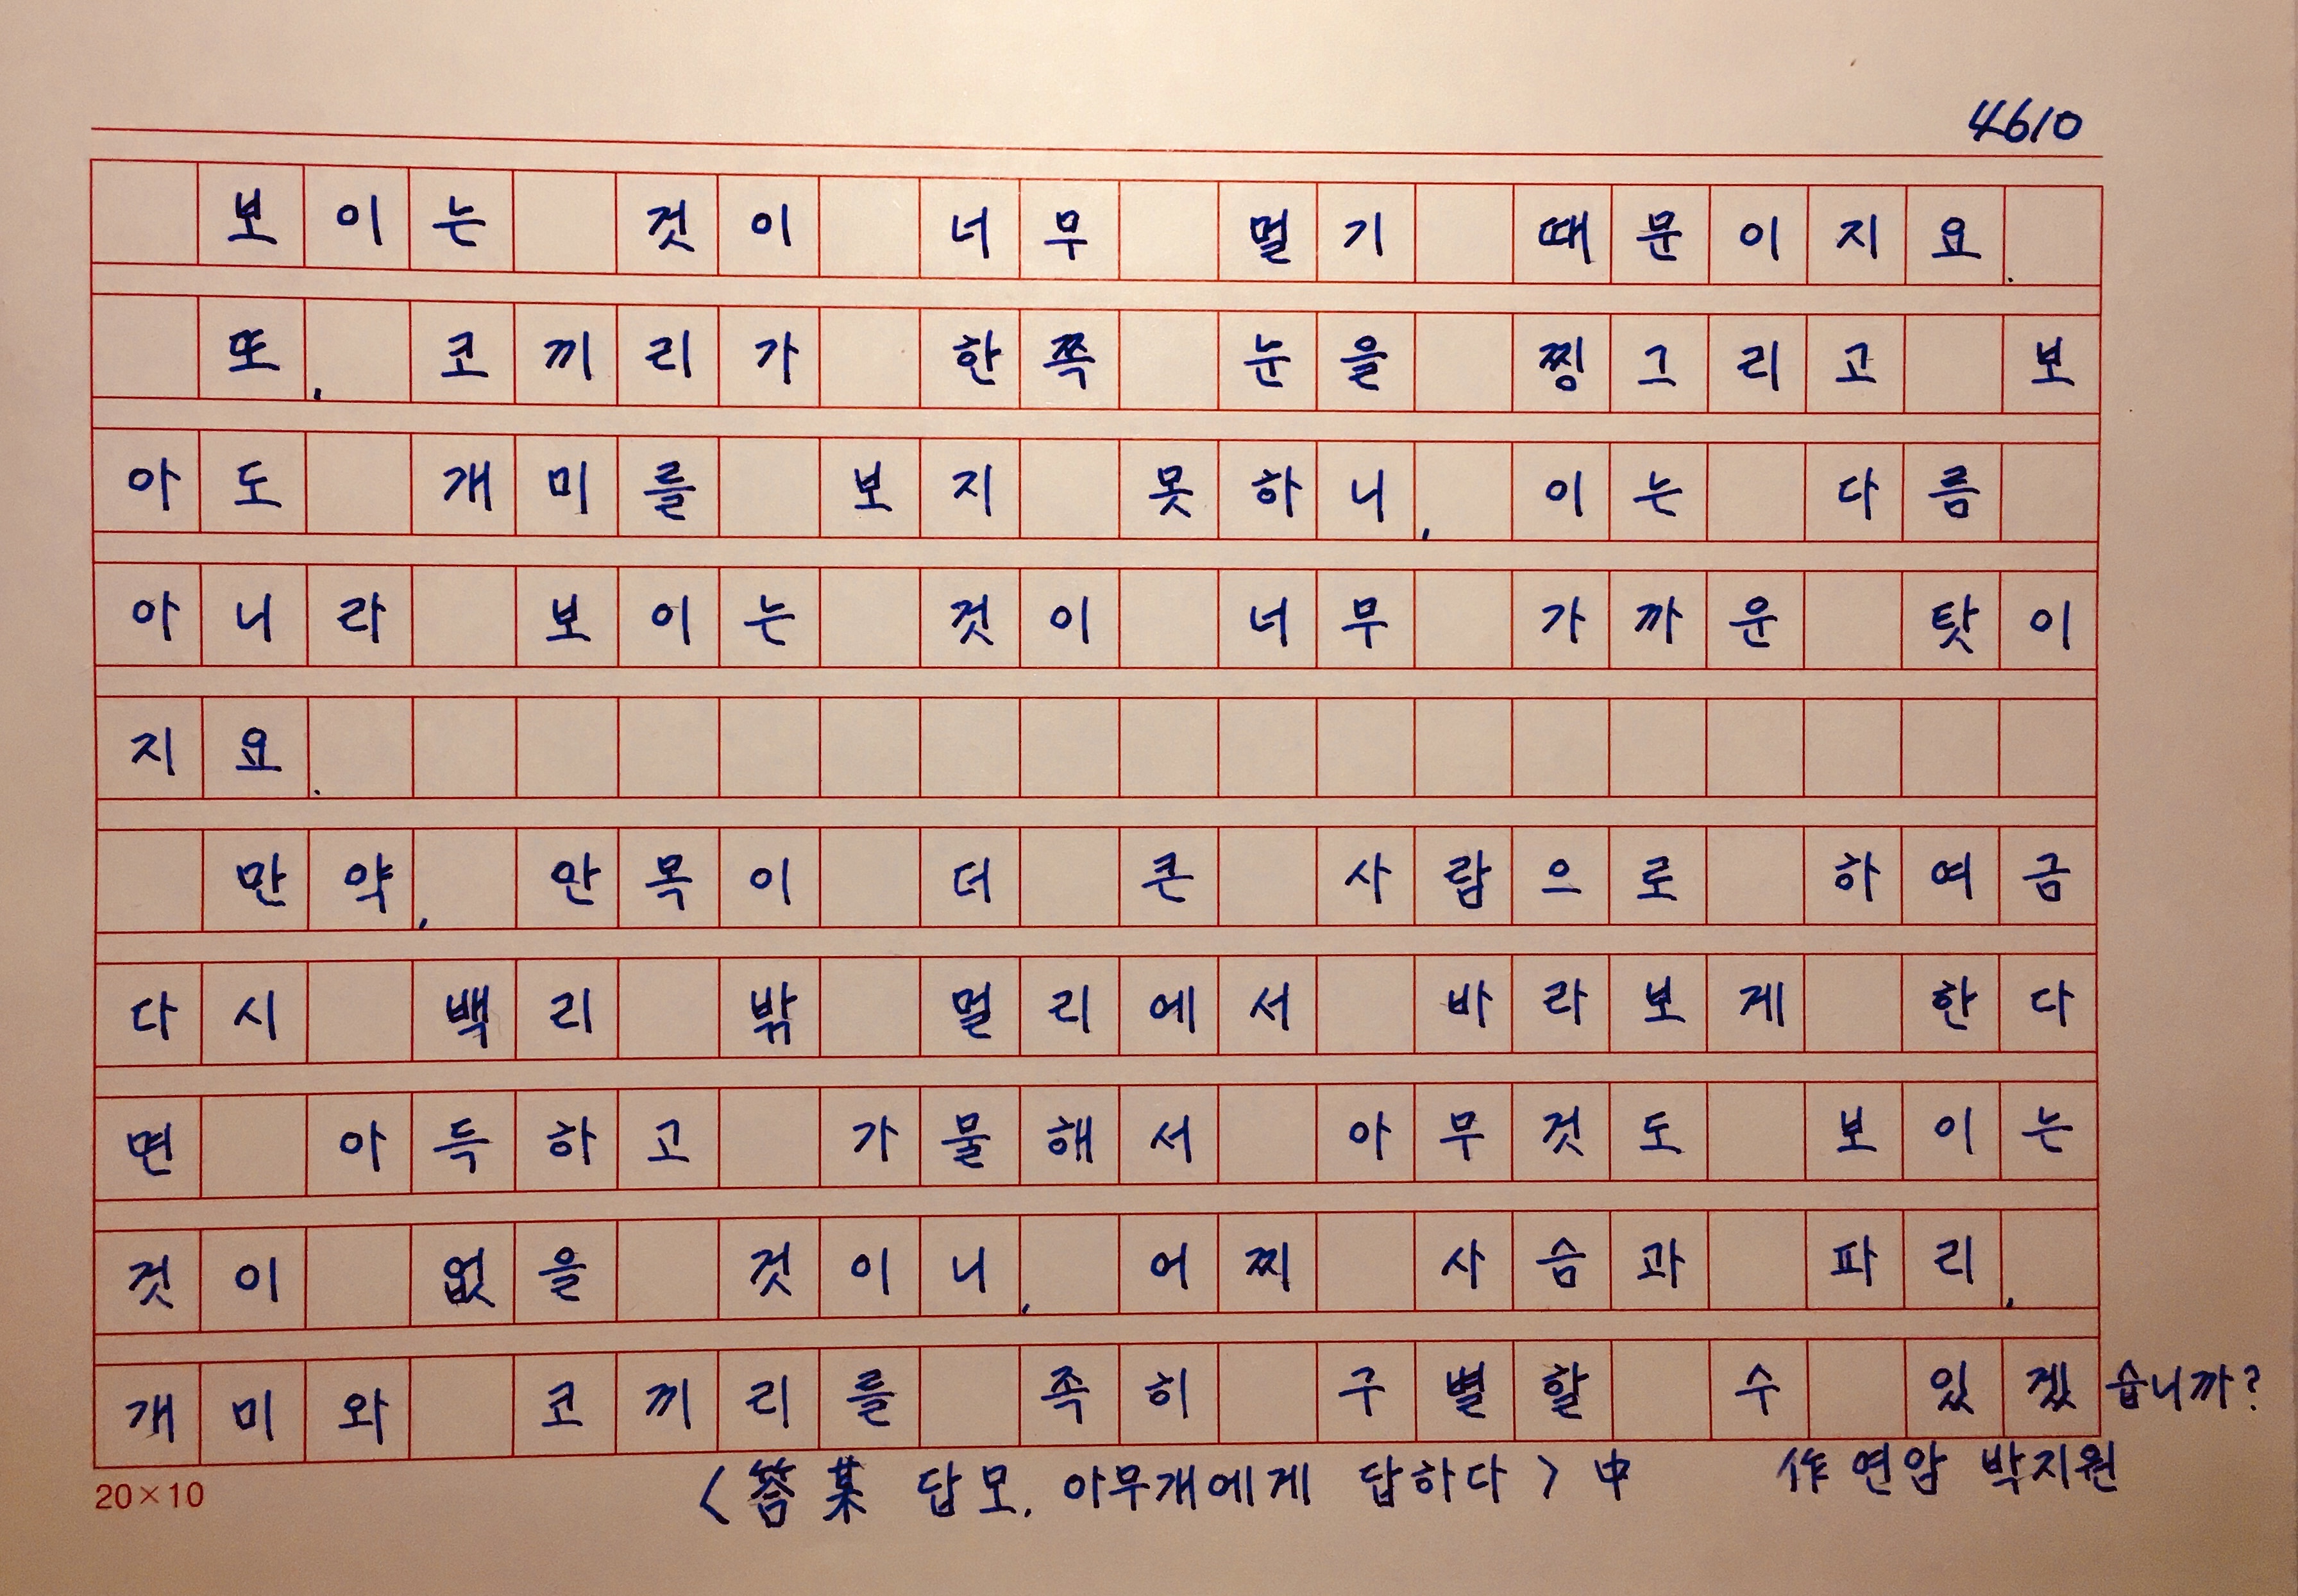 4610
보이는 것이 너무 멀기 때문이지요.
또, 코끼리가 한쪽 눈을 찡그리고 보
아도 개미를 보지 못하니, 이는 다름
아니라 보이는 것이 너무 가까운 탓이
지요.
만약, 안목이 더 큰 사람으로 하여금
다시 백리 밖 멀리에서 바라보게 한다
면 아득하고 가물해서 아무것도 보이는
것이 없을 것이니, 어찌 사슴과 파리,
개미와 코끼리를 족히 구별할 수 있겠습니까?
20×10 〈答某 답모, 아무개에게 답하다〉中 作 연암 박지원